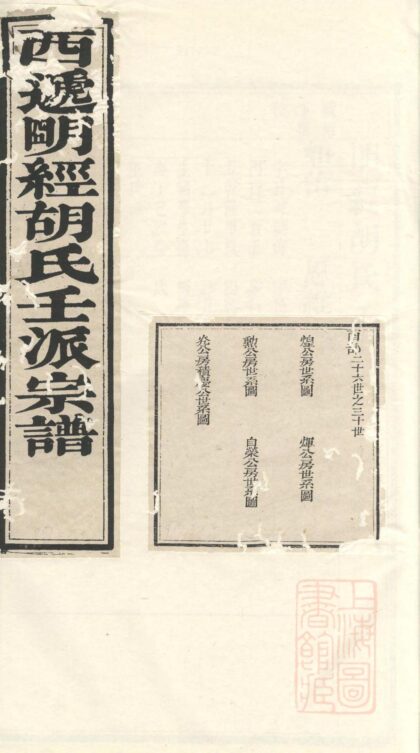 西遞明經胡氏壬派宗譜
二十六世之三十世
煌公房世系圖
輝公房世系圖
勲公房世系圖
自榮公房世系圖
公房積
公世系圖
上海圖
書館藏